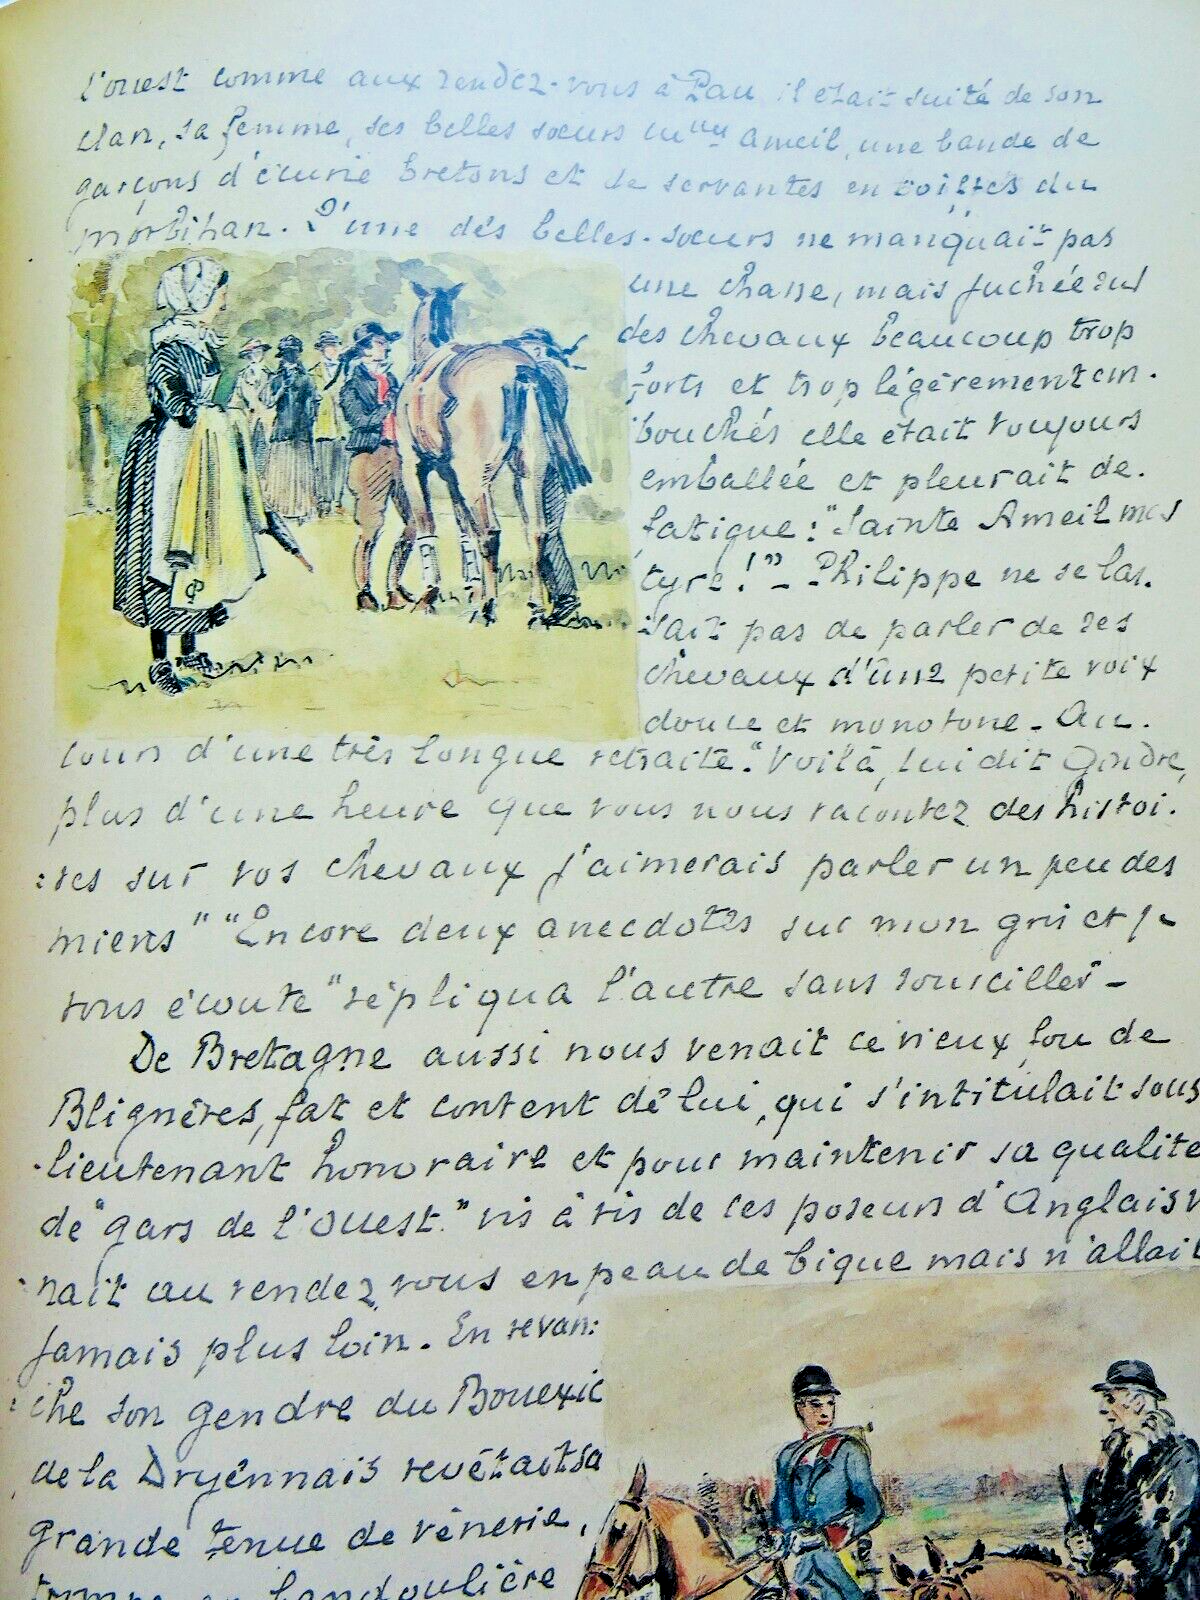 l'ouest comme aux rendez-vous à Pau il était suité de son
clan, sa femme, ses belles sœurs Ameil, une bande de
garçons d'écurie bretons et de servantes en coiffes du
Morbihan. L'une des belles-sœurs ne manquait pas
une chasse, mais juchée sur
des chevaux beaucoup trop
forts et trop légèrement em-
bouchés elle était toujours
emballée et pleurait de
fatigue : "Sainte Ameil mar
tyre !" - Philippe ne se las-
sait pas de parler de ses
chevaux d'une petite voix
douce et monotone - Au
cours d'une très longue retraite : "Voilà, lui dit Gindre,
plus d'une heure que vous nous racontez des histoi-
:res sur vos chevaux j'aimerais parler un peu des
miens" "Encore deux anecdotes sur mon gris et je
vous écoute" répliqua l'autre sans sourciller -
De Bretagne aussi nous venait ce vieux fou de
Blignères, fat et content de lui, qui s'intitulait sous
-lieutenant honoraire et pour maintenir sa qualité
de "gars de l'Ouest" vis à vis de ces poseurs d'Anglais v
nait au rendez vous en peau de bique mais n'allait
jamais plus loin. En revan:
:che son gendre du Bouexic
de la Dryennais revêtait sa
grande tenue de vénerie,
trompe en bandoulière